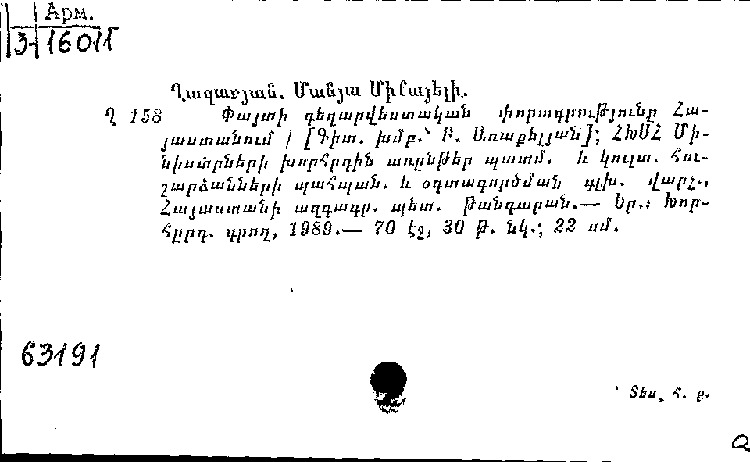 Арм.
3-16011
Ղազարյան. Մանյա Միքայելի.
Ղ 158 Փայտի գեղարվեստական փորագրությունը Հա-
յաստանում / [Գիտ. խմբ.՝ Բ. Առաքելյան]; ՀԽՍՀ Մի-
նիստրների խորհրդին առընթեր պատմ. և կուլտ. հու-
շարձանների պահպան. և օգտագործման գլխ. վարչ.,
Հայաստանի ազգագր. պետ. թանգարան.— Եր.: Խոր-
հըրդ. գրող, 1989.— 70 էջ, 30 թ. նկ.; 22 սմ.
63191
Տես, հ. ը.